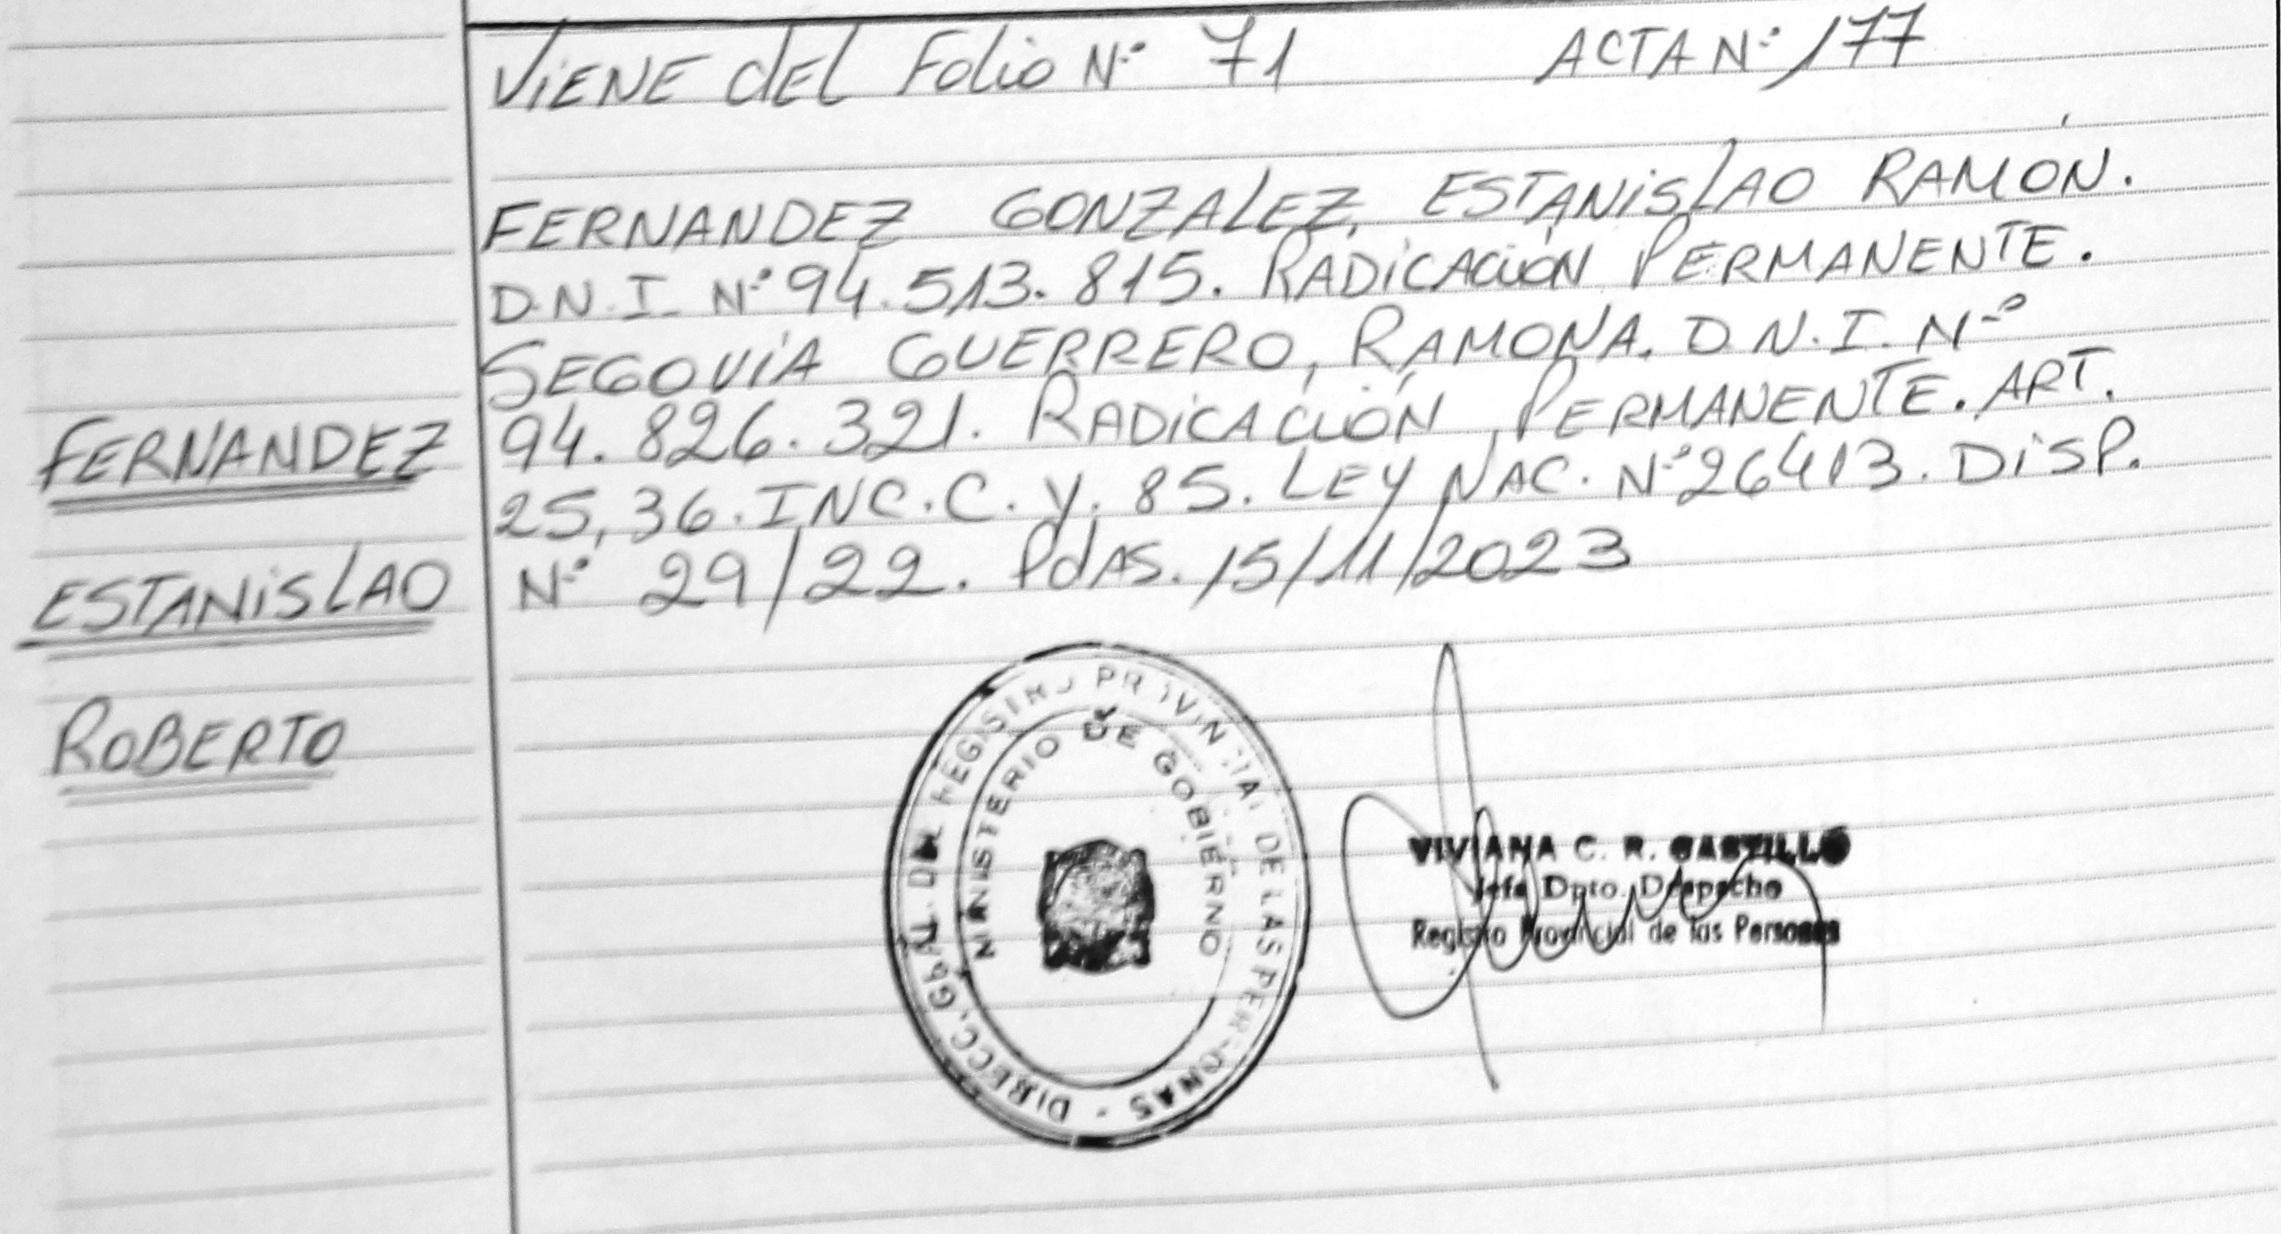 ViENE dEL Folio Nº 71 ACTA Nº 177
FERNANDEZ GONZALEZ, ESTANiSLAO RAMÓN.
D.N.I. Nº 94.513.815. RADiCACiÓN PERMANENTE.
SEGOViA GUERRERO, RAMONA. D.N.I. Nº
94.826.321. RADiCACiÓN PERMANENTE. ART.
25,36. INC. C. y. 85. LEY NAC. Nº 26413. DiSP.
Nº 29/22. PdAS. 15/11/2023
FERNANDEZ
ESTANiSLAO
ROBERTO
DIRECC. GRAL. DEL REGISTRO PROVINCIAL DE LAS PERSONAS -
MINISTERIO DE GOBIERNO
VIVIANA C. R. CASTILLO
Jefa Dpto. Despacho
Registro Provincial de las Personas